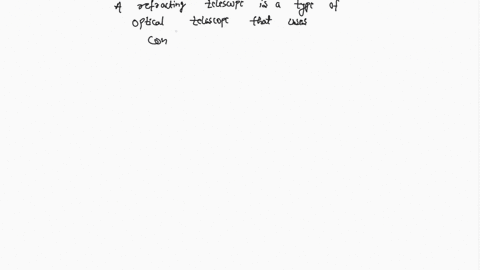 A refracting telescope is a type of
optical telescope that uses
Con